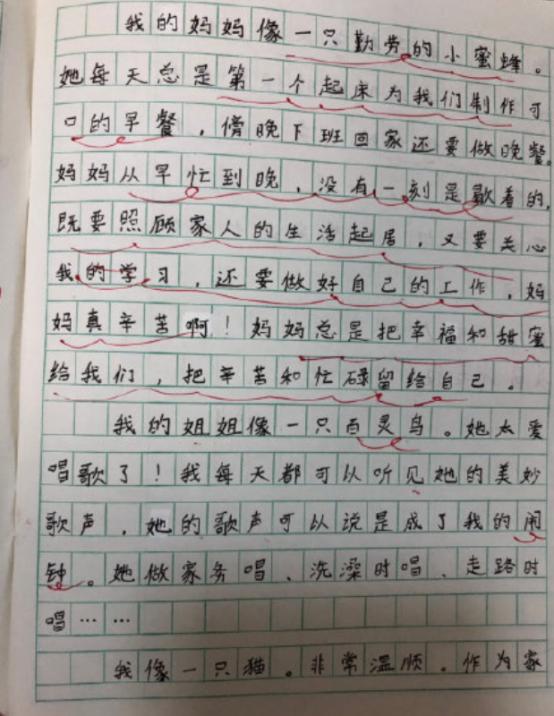 我的妈妈像一只勤劳的小蜜蜂。
她每天总是第一个起床为我们制作可
口的早餐，傍晚下班回家还要做晚餐。
妈妈从早忙到晚，没有一刻是歇着的，
既要照顾家人的生活起居，又要关心
我的学习，还要做好自己的工作，妈
妈真辛苦啊！妈妈总是把幸福和甜蜜
给我们，把辛苦和忙碌留给自己。
我的姐姐像一只百灵鸟。她太爱
唱歌了！我每天都可以听见她的美妙
歌声，她的歌声可以说是成了我的闹
钟。她做家务唱、洗澡时唱、走路时
唱……
我像一只猫。非常温顺。作为家